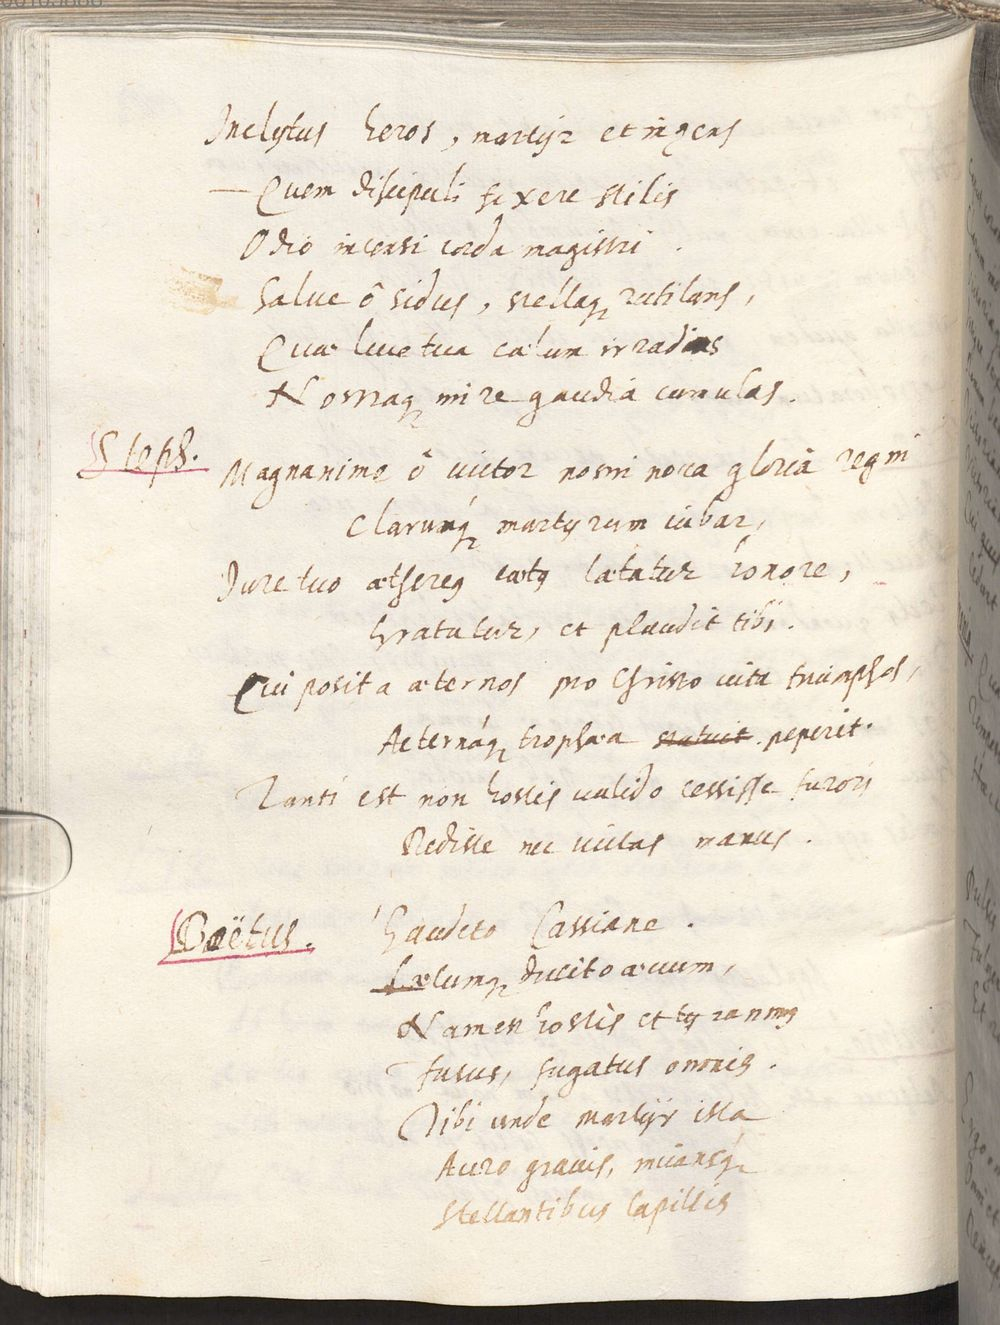 Inclytus heros, martyr et ingens
Quem discipuli fixere stilis
Odio incensi corda magistri.
Salve ô sidus, stellaq rutilans,
Quæ luce tua cælum irradias
Nostraq mire gaudia cumulas.
Steph. Magnanime ô victor nostri nova gloria regni
Clarumq martyrum iubar,
Iure tuo æthereq cætq lætatur honore,
Gratatur, et plaudit tibi.
Qui posita æternos pro Christo vita triumphos,
Aeternáq trophæa statuit peperit.
Tanti est non hostis valido cessisse furori
Dedisse nec victas manus.
Boëtus. Gaudeto Cassiane.
Lætumq ducito ævum,
Nam en hostis et tyrannus
fusus, fugatus omnis.
Tibi unde martyr ista
Auro gravis, micansq
Stellantibus lapillis